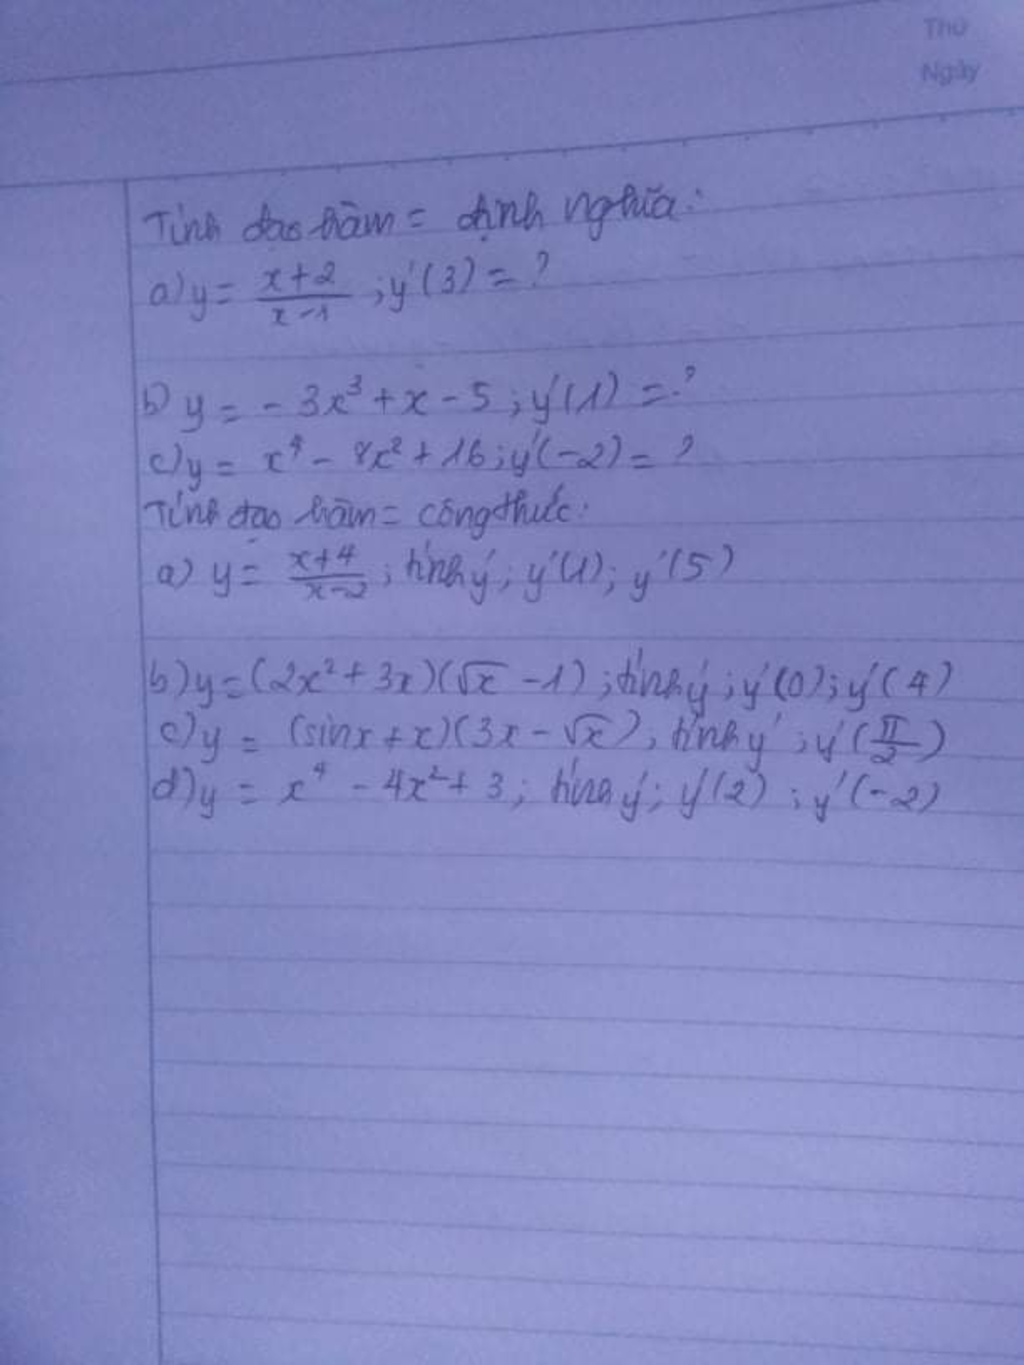 Thứ
Ngày
Tính đạo hàm = định nghĩa:
a) y = \frac{x+2}{x-1} ; y'(3) = ?
b) y = -3x³ + x - 5 ; y'(1) = ?
c) y = x⁴ - 8x² + 16 ; y'(-2) = ?
Tính đạo hàm = công thức:
a) y = \frac{x+4}{x-2} ; tính y' ; y'(1) ; y'(5)
b) y = (2x² + 3x)(√x - 1) ; tính y' ; y'(0) ; y'(4)
c) y = (sinx + x)(3x - √x), tính y' ; y'(\frac{π}{2})
d) y = x⁴ - 4x² + 3 ; tính y' ; y'(2) ; y'(-2)